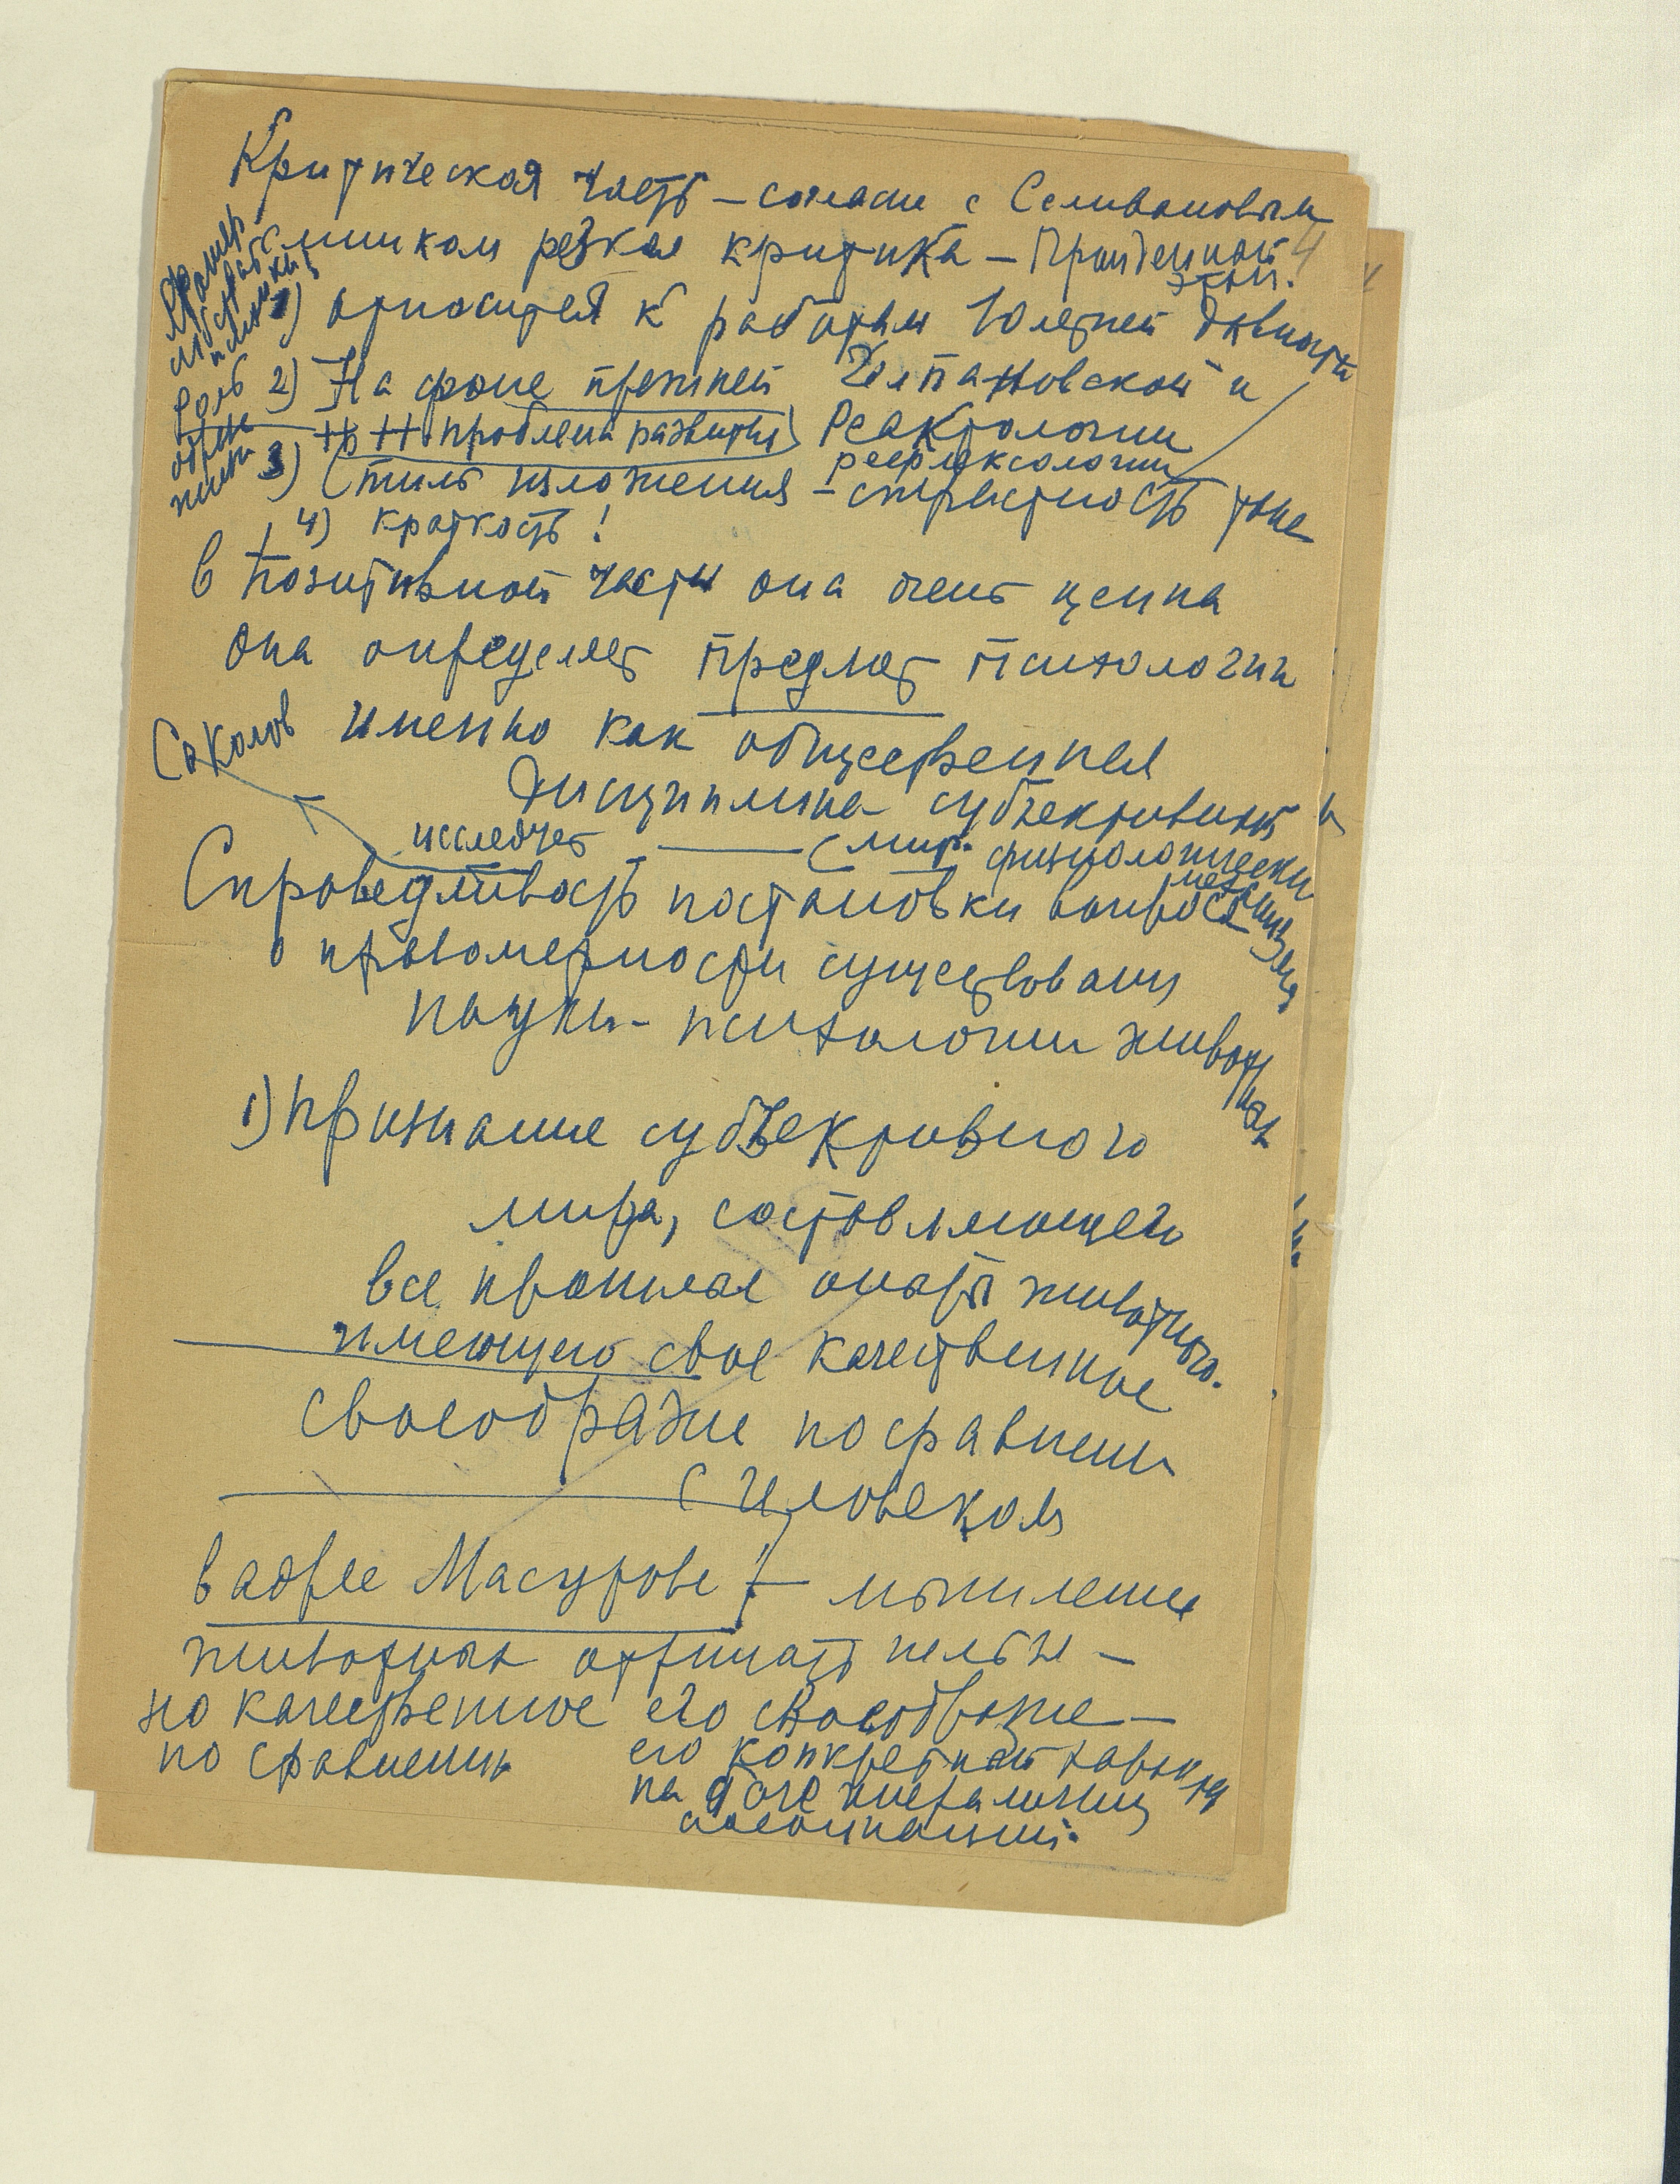 Критическая часть – согласи с Селивановым
слишком резкая критика – Пройденный
этап.
4
1) относится к работам 10 летней давности
2) На фоне прежней Челпановской и
проблема развития) Реактологии
рефлексологии
3) Стиль изложения – страстность тоне
4) краткость!
Роль
в позитивной части она очень ценна
она определяет предмет психологии
Соколов именно как общественная
дисциплина субъективный
исследует (мир. физиологически
механизмы
Справедливость постановки вопроса
о правомерности существования
науки – психологии животных
1) признание субъективного
мира, составляющего
все прошлое опыта животного.
имеющего свое качественное
своеобразие по сравнении
с человеком
в адрес – мышление
животных отрицать нельзя –
но качественное его своеобразие –
по сравнению его конкретный характер
на
ассоциаций.